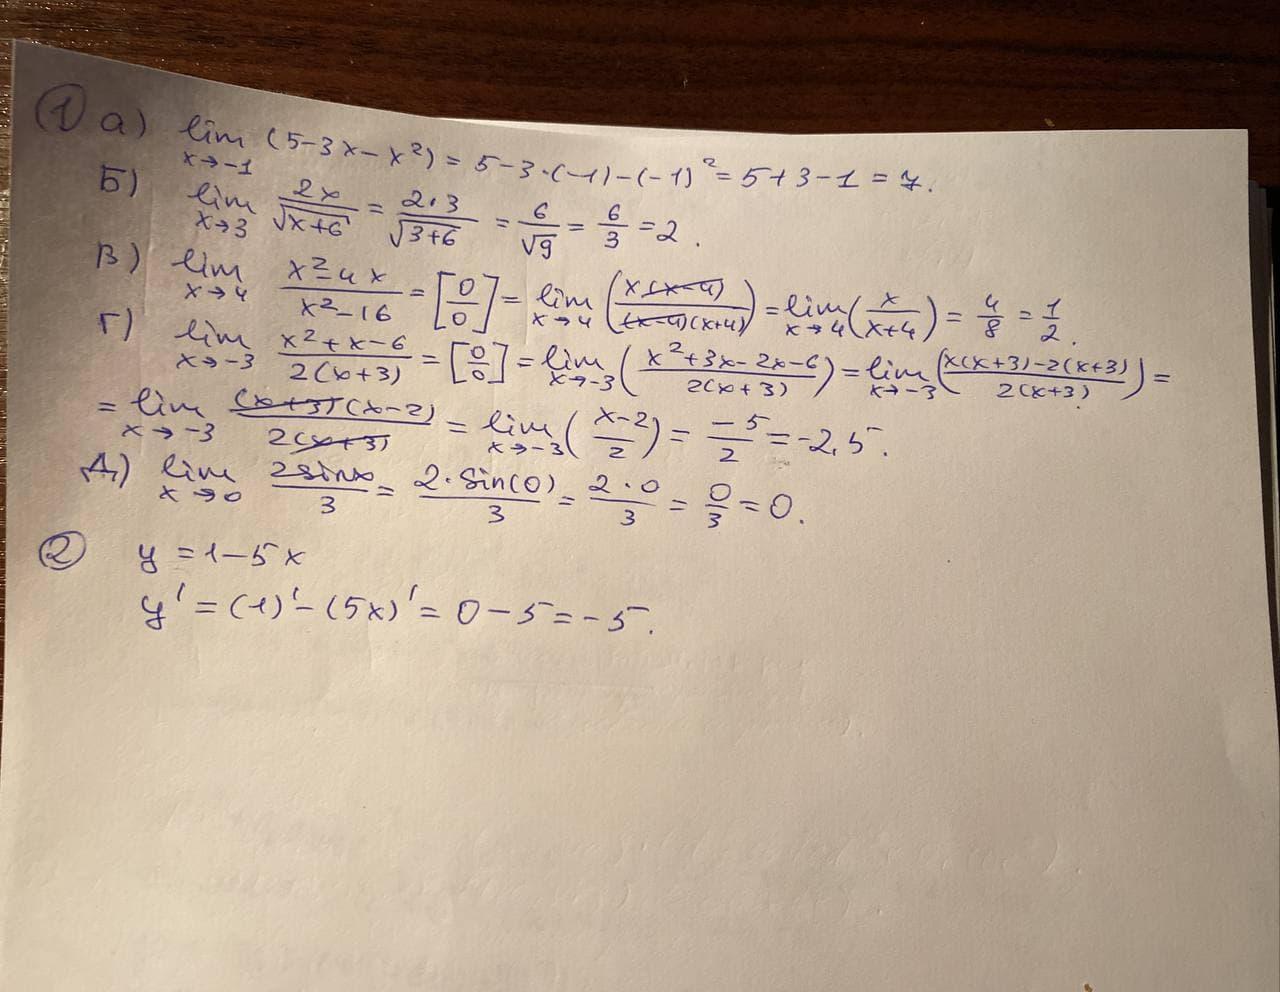 ① а) lim x→-1 (5-3x-x²) = 5-3·(-1)-(-1)² = 5+3-1 = 7.
Б) lim x→3 2x/√(x+6) = 2·3/√(3+6) = 6/√9 = 6/3 = 2.
В) lim x→4 (x²-4x)/(x²-16) = [0/0] = lim x→4 (x(x-4)/(x-4)(x+4)) = lim x→4 (x/(x+4)) = 4/8 = 1/2.
Г) lim x→-3 (x²+x-6)/2(x+3) = [0/0] = lim x→-3 ((x²+3x-2x-6)/2(x+3)) = lim x→-3 ((x(x+3)-2(x+3))/2(x+3)) =
= lim x→-3 (x+3)(x-2)/2(x+3) = lim x→-3 ((x-2)/2) = -5/2 = -2,5.
Д) lim x→0 2sinx/3 = 2·sin(0)/3 = 2·0/3 = 0/3 = 0.
② y = 1-5x
y' = (1)'-(5x)' = 0-5 = -5.